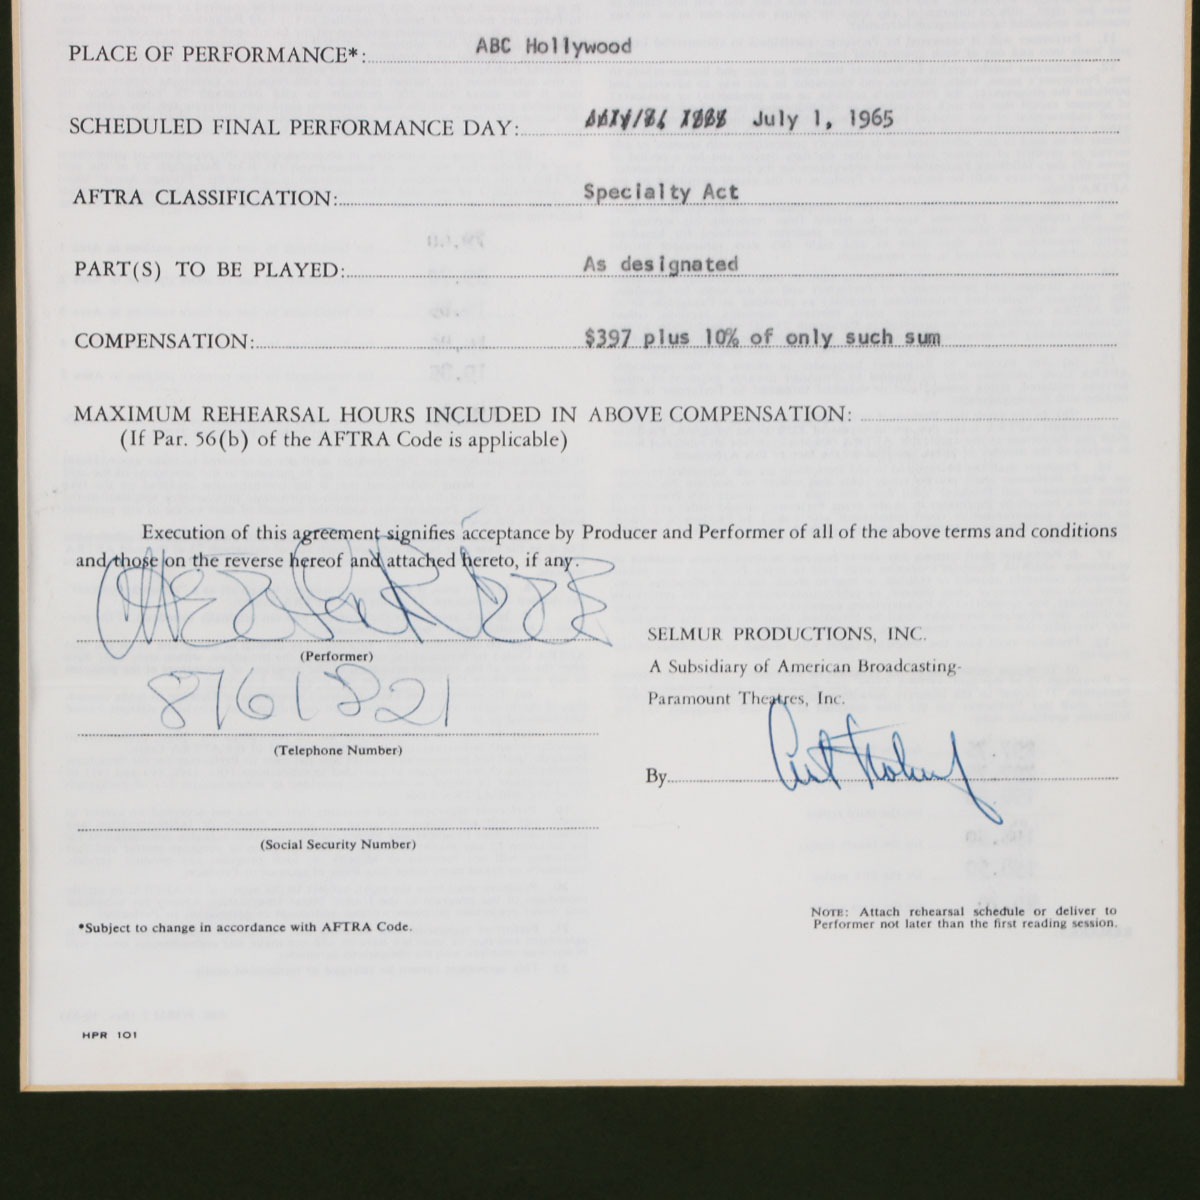 PLACE OF PERFORMANCE*: ABC Hollywood
SCHEDULED FINAL PERFORMANCE DAY: July 1, 1965
AFTRA CLASSIFICATION: Specialty Act
PART(S) TO BE PLAYED: As designated
COMPENSATION: $397 plus 10% of only such sum
MAXIMUM REHEARSAL HOURS INCLUDED IN ABOVE COMPENSATION:
(If Par. 56(b) of the AFTRA Code is applicable)
Execution of this agreement signifies acceptance by Producer and Performer of all of the above terms and conditions
and those on the reverse hereof and attached hereto, if any.
(Performer)
8761821
(Telephone Number)
(Social Security Number)
SELMUR PRODUCTIONS, INC.
A Subsidiary of American Broadcasting-
Paramount Theatres, Inc.
By
*Subject to change in accordance with AFTRA Code.
NOTE: Attach rehearsal schedule or deliver to
Performer not later than the first reading session.
HPR 101